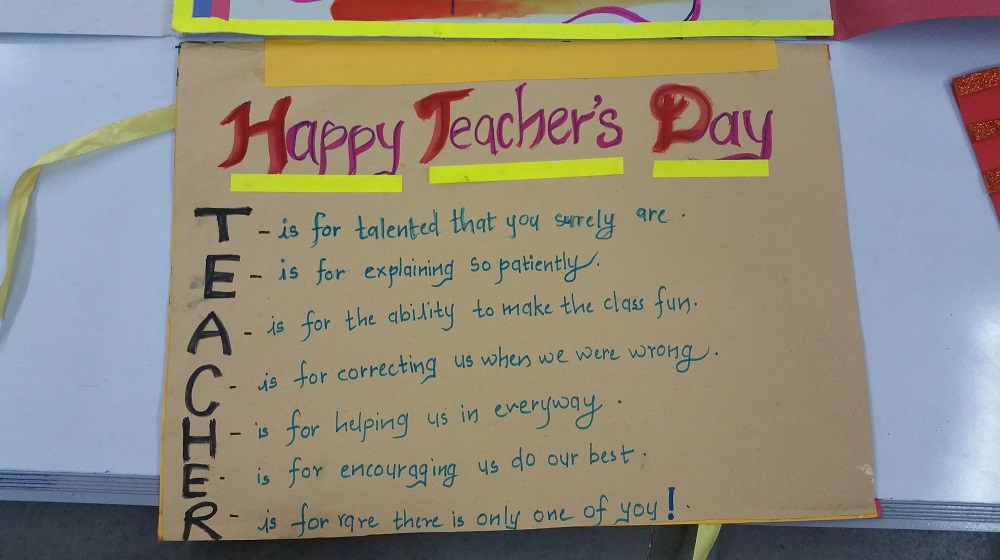 Happy Teacher's Day
T - is for talented that you surely are.
E - is for explaining so patiently.
A - is for the ability to make the class fun.
C - is for correcting us when we were wrong.
H - is for helping us in everyway.
E - is for encouraging us do our best.
R - is for rare there is only one of you!